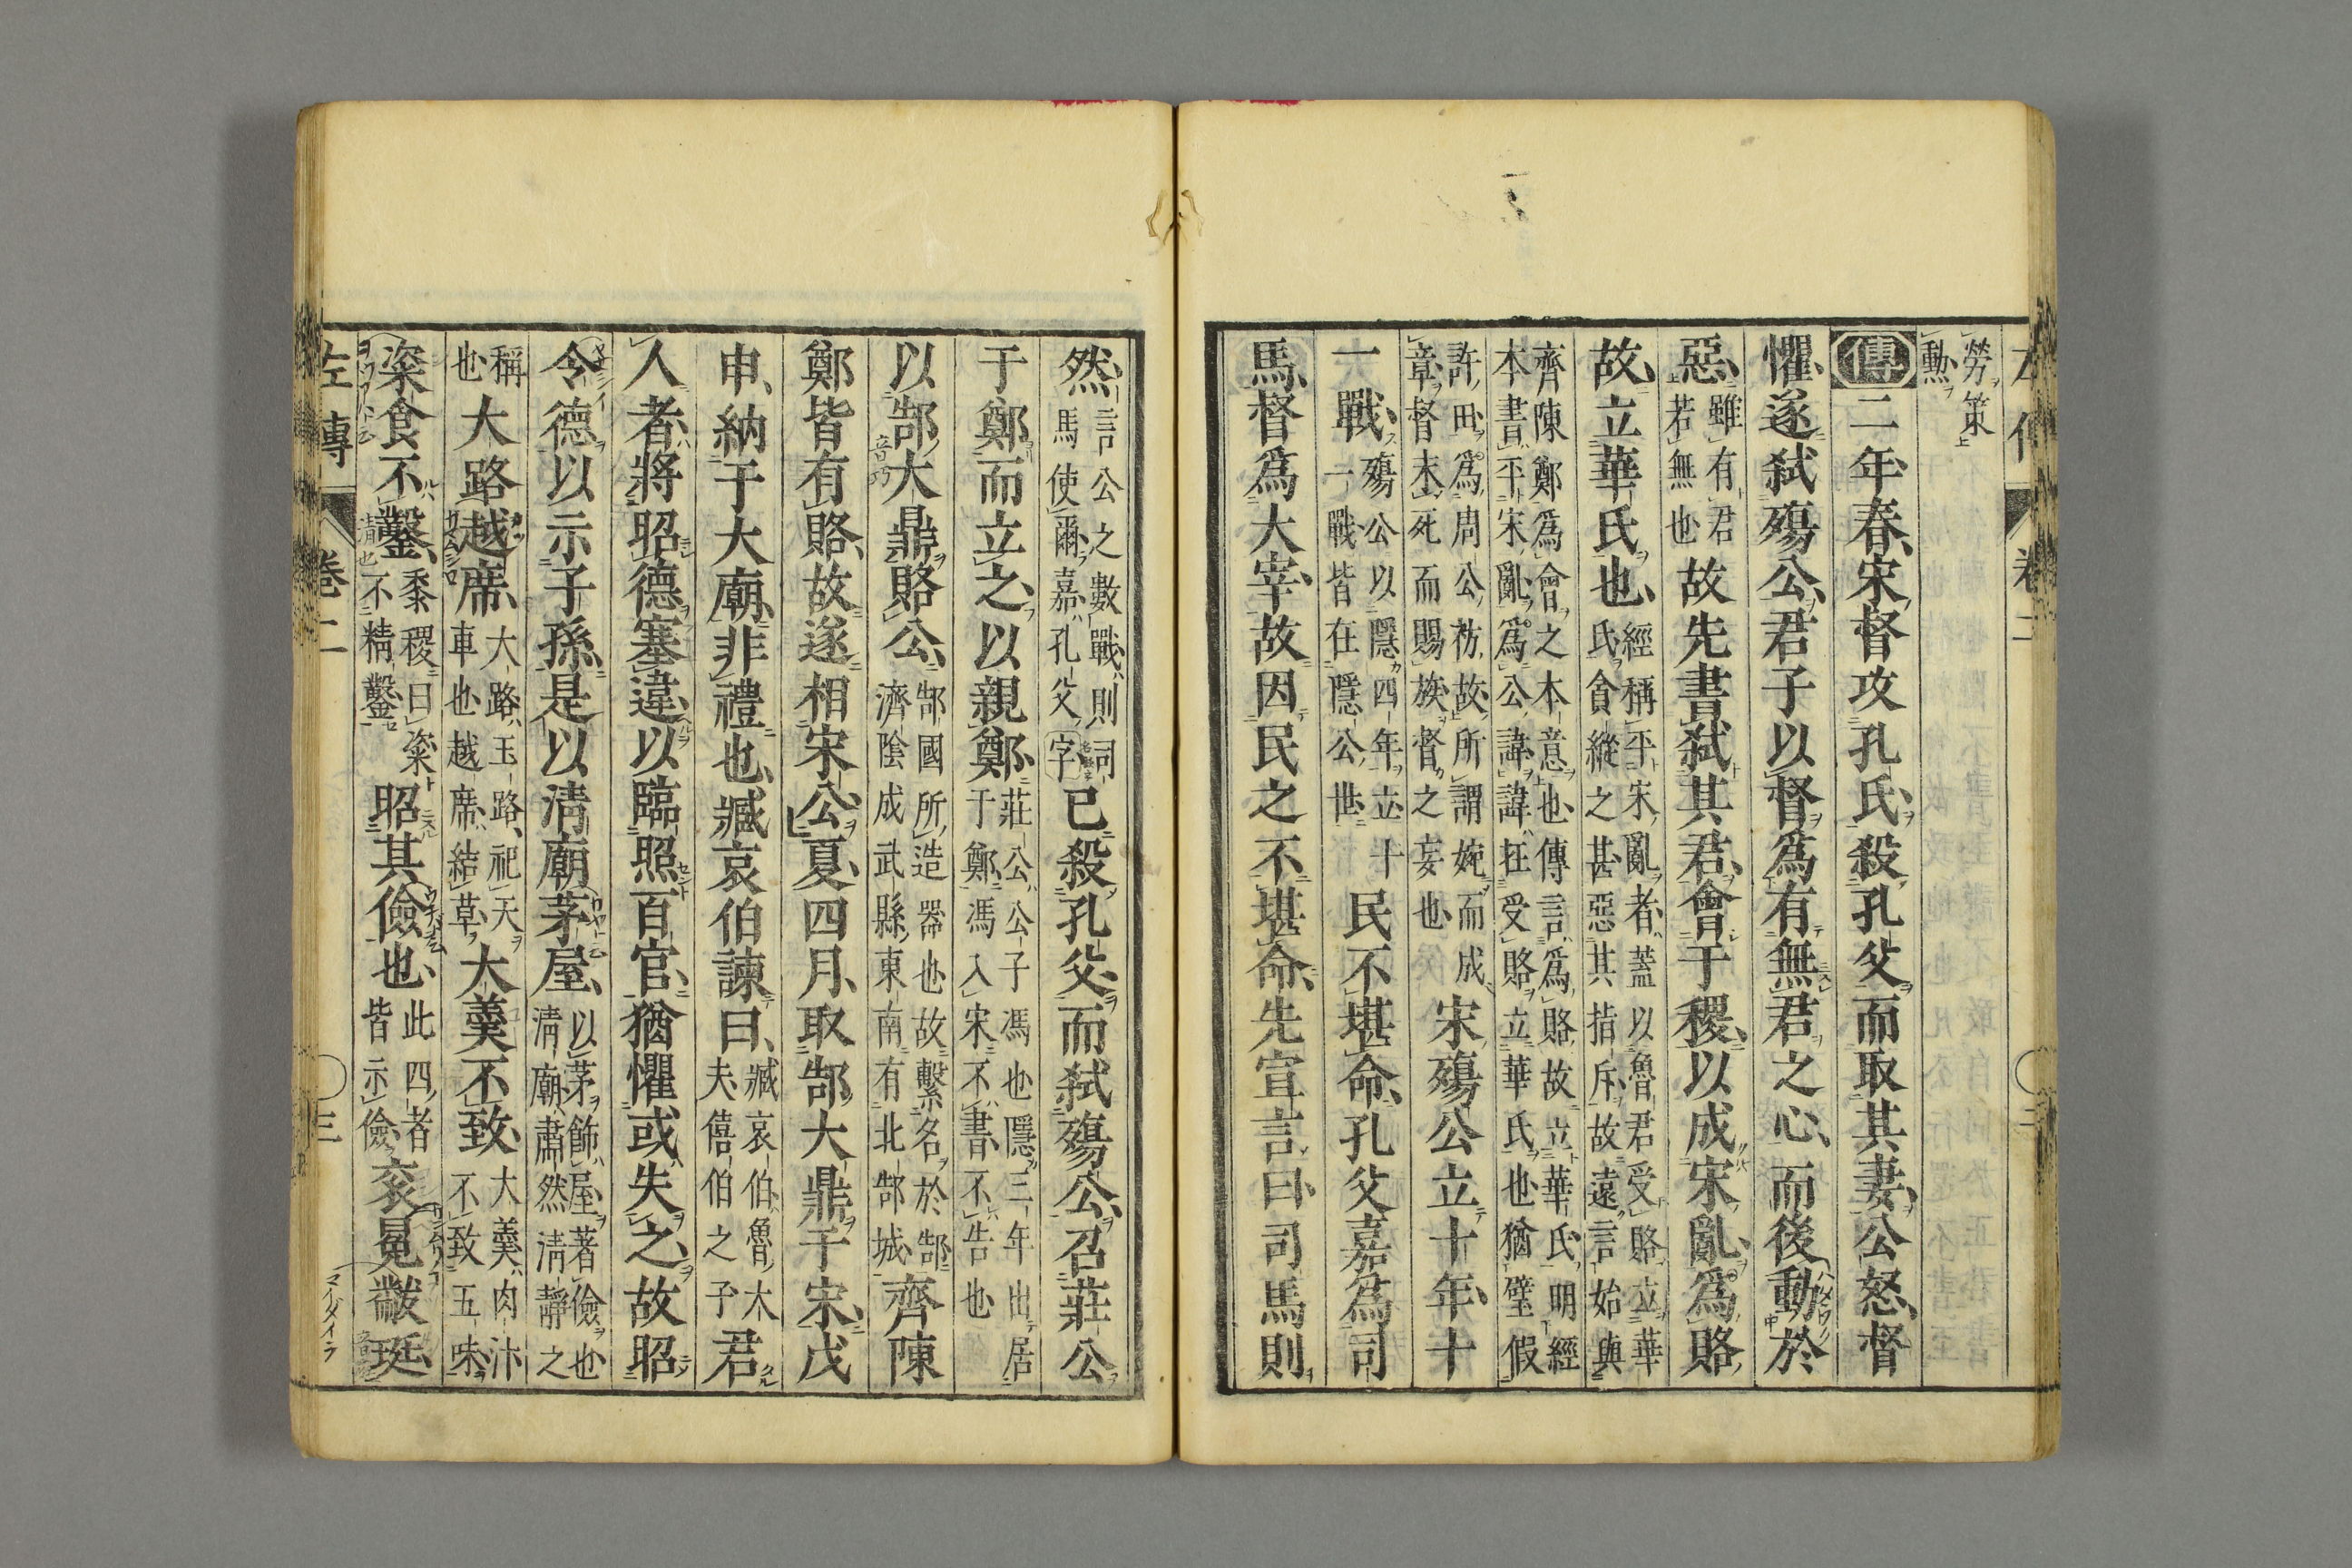 勞策
勳
傳二年春宋督攻孔氏殺孔父而取其妻公怒督
懼遂弑殤公君子以督爲有無君之心而後動於
惡雖有君若無也故先書弑其君會于稷以成宋亂爲賂
故立華氏也經稱平宋亂者蓋以魯君受賂立華氏貪縱之甚惡其指斥故遠言始與
齊陳鄭爲會之本意也傳言爲賂故立華氏明經本書平宋亂爲公諱諱在受賂立華氏也猶璧假
許田爲周公祊故所謂婉而成章督未死而賜族督之妄也宋殤公立十年十
一戰殤公以隱四年立十一戰皆在隱公世民不堪命孔父嘉爲司
馬督爲大宰故因民之不堪命先宣言曰司馬則
然言公之數戰則司馬使爾嘉孔父字已殺孔父而弑殤公召莊公
于鄭而立之以親鄭莊公公子馮也隱三年出居于鄭馮入宋不書不告也
以郜大鼎賂公郜國所造器也故繫名於郜濟陰成武縣東南有北郜城齊陳
鄭皆有賂故遂相宋公夏四月取郜大鼎于宋戊
申納于大廟非禮也臧哀伯諫曰臧哀伯魯大夫僖伯之子君
人者將昭德塞違以臨照百官猶懼或失之故昭
令德以示子孫是以淸廟茅屋以茅飾屋著儉也淸廟肅然淸靜之
稱也大路越席大路玉路祀天車也越席結草大羹不致大羹肉汁不致五味
粢食不鑿黍稷曰粢不精鑿昭其儉也此四者皆示儉袞冕黻珽
左傳 卷二 三